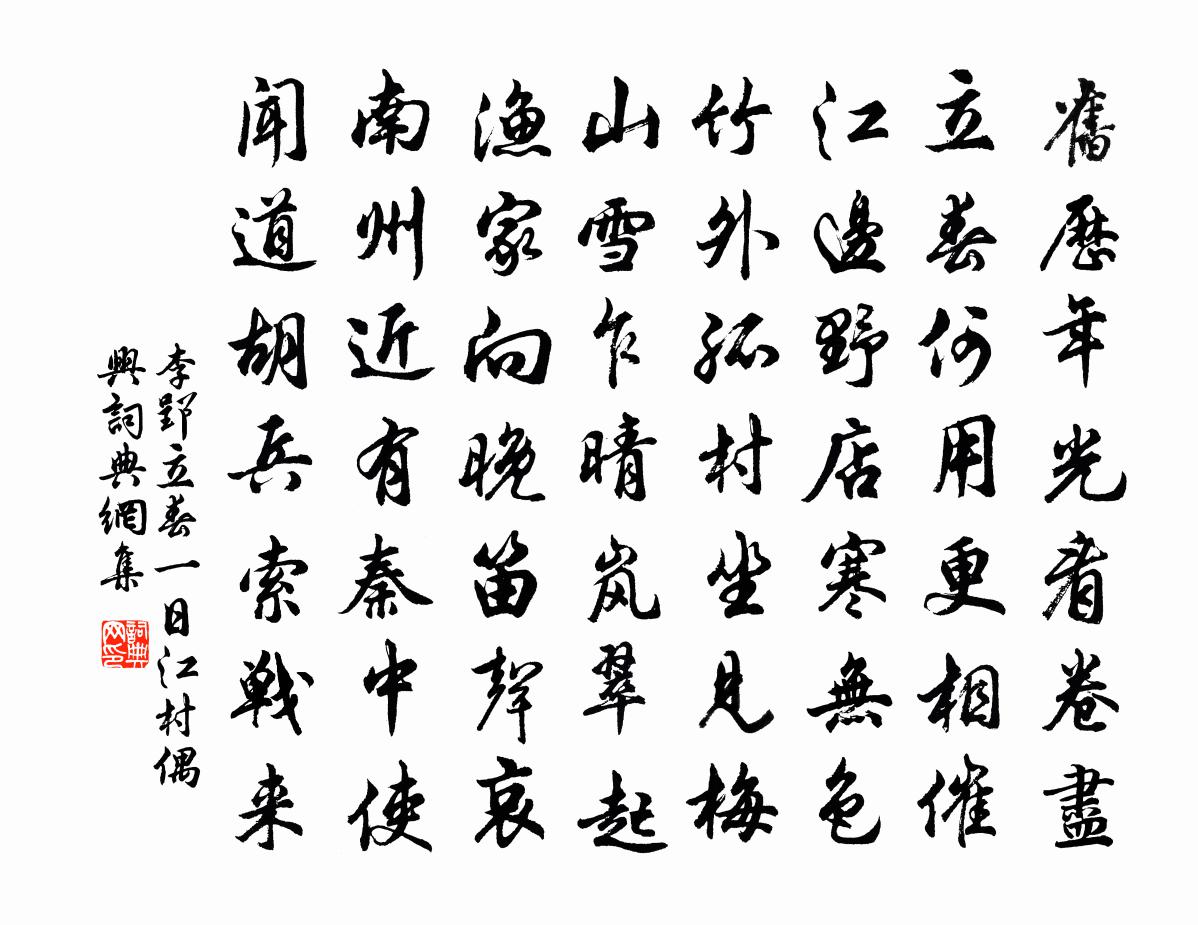 舊歷年光看卷盡
立春何用更相催
江邊野店寒無色
竹外孤村坐見梅
山雪乍晴嵐翠起
漁家向晚笛聲哀
南州近有秦中使
聞道胡兵索戰来
李郢立春一日江村偶
興詞典網集
詞典
网印